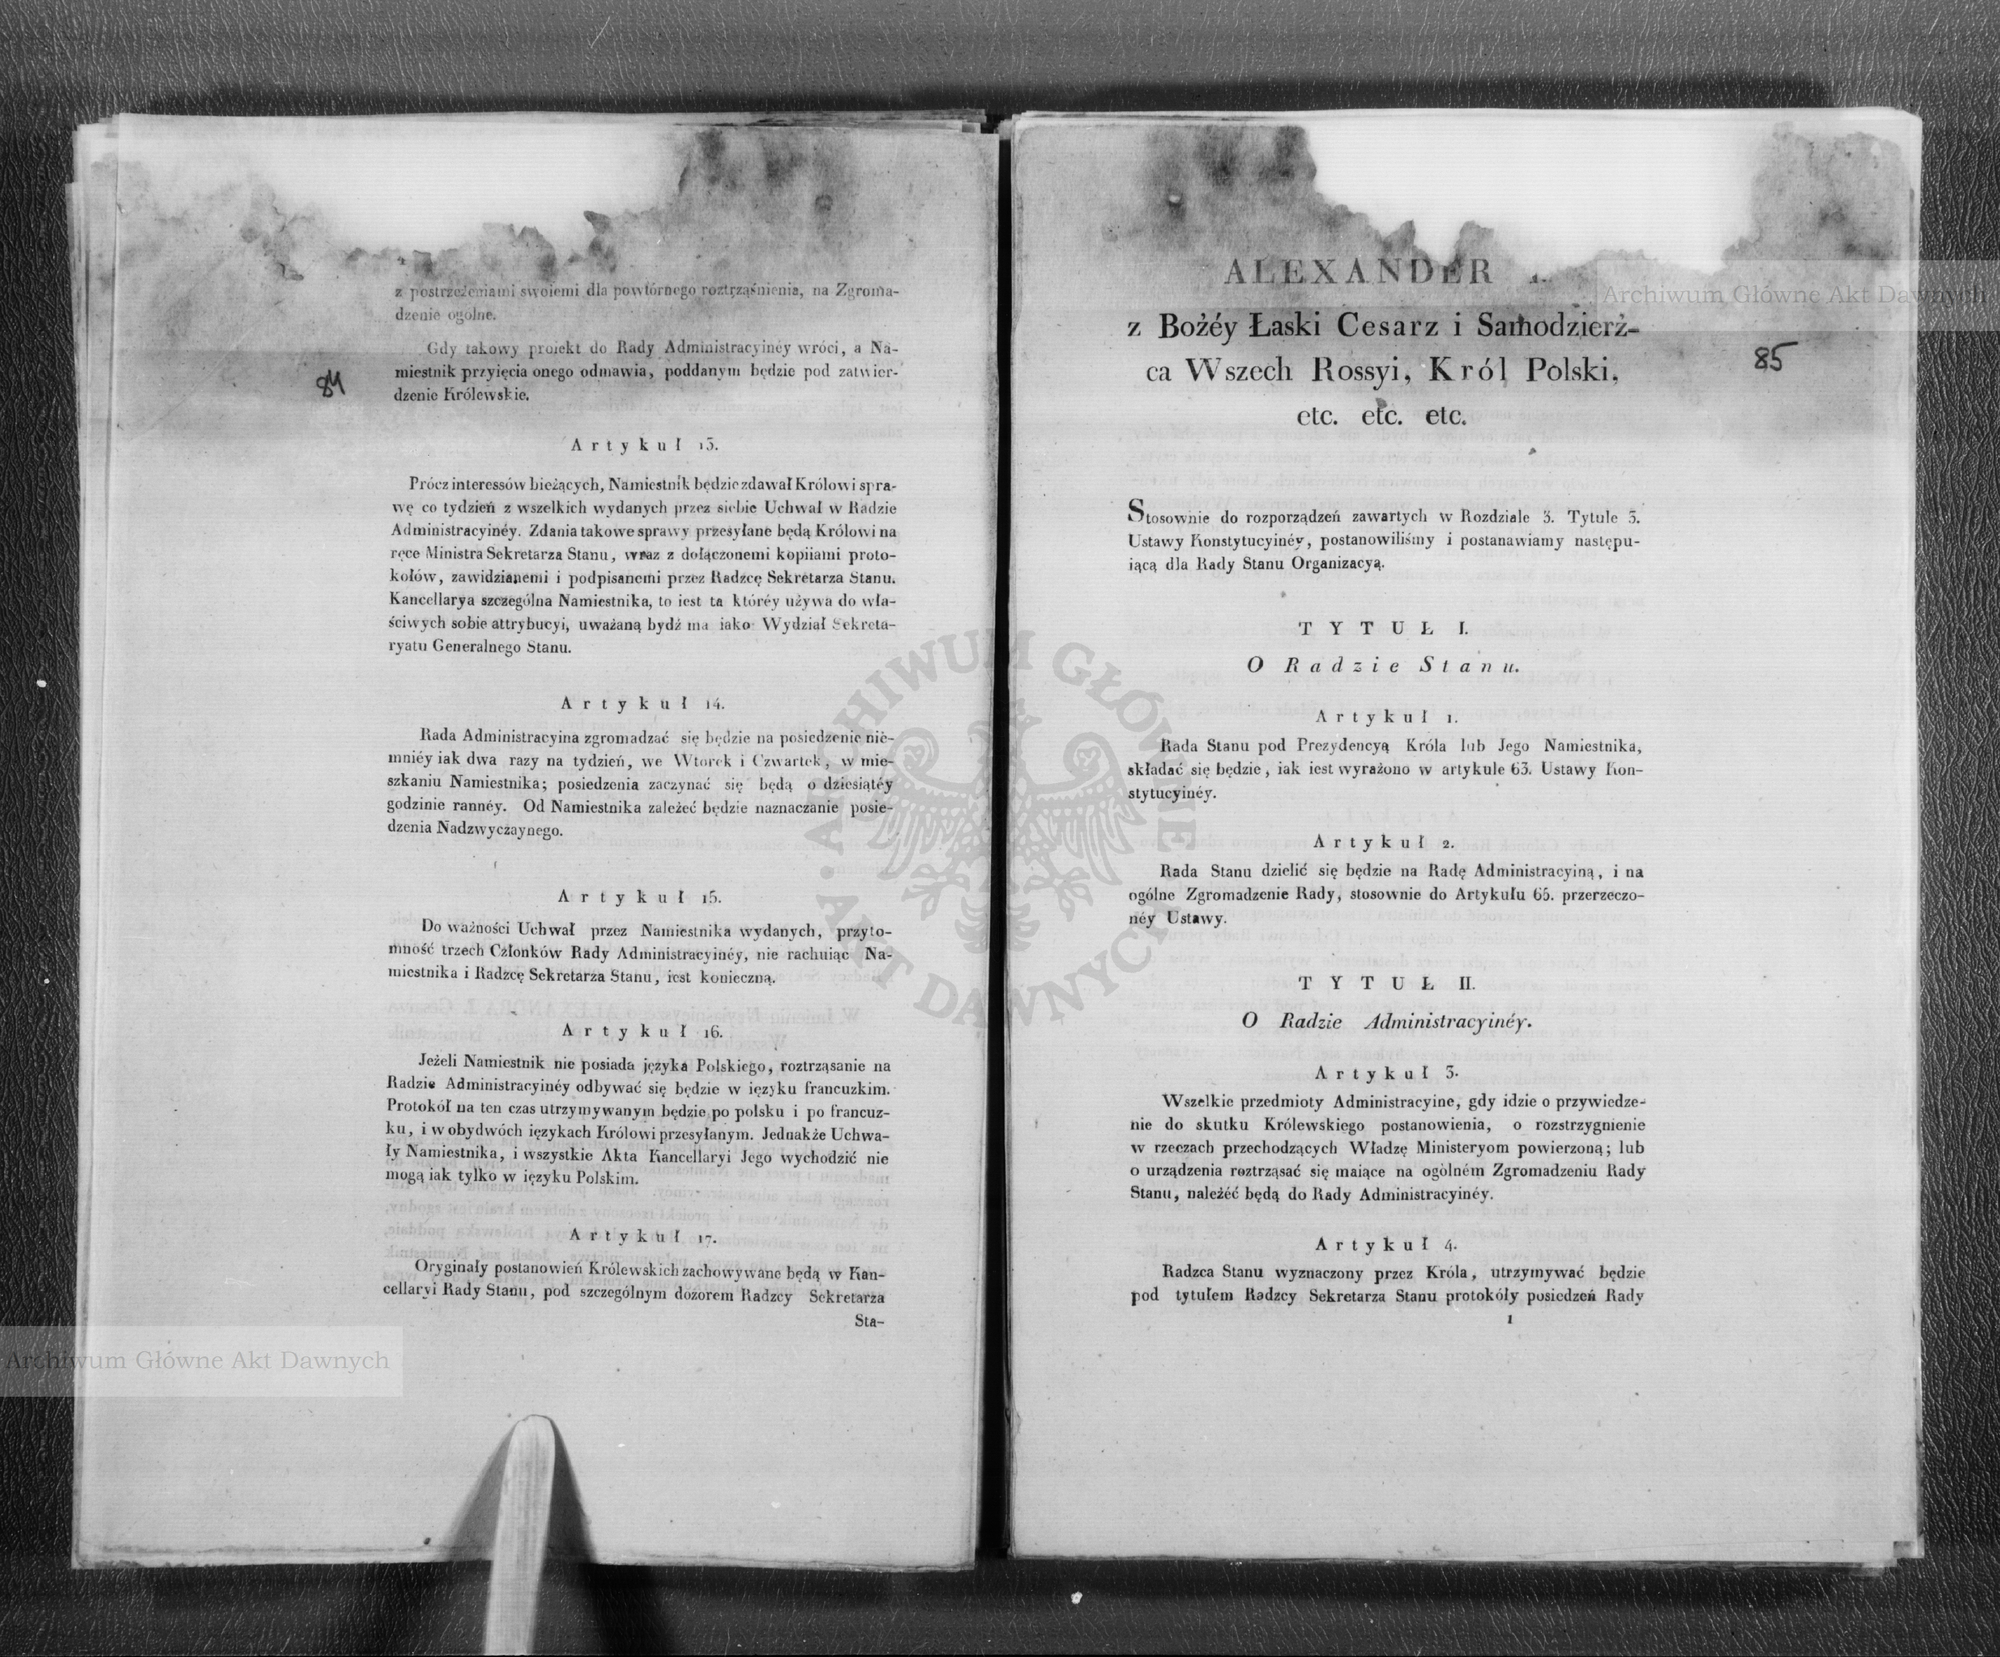 z postrzeżeniami swoiemi dla powtórnego roztrząśnienia, na Zgroma-
dzenie ogólne.
Gdy takowy proiekt do Rady Administracyinéy wróci, a Na-
miestnik przyięcia onego odmawia, poddanym będzie pod zatwier-
dzenie Królewskie.
84
Artykuł 13.
Prócz interessów bieżących, Namiestnik będzie zdawał Królowi spra-
wę co tydzień z wszelkich wydanych przez siebie Uchwał w Radzie
Administracyinéy. Zdania takowe sprawy przesyłane będą Królowi na
ręce Ministra Sekretarza Stanu, wraz z dołączonemi kopiiami proto-
kołów, zawidzianemi i podpisanemi przez Radzcę Sekretarza Stanu.
Kancellarya szczególna Namiestnika, to iest ta któréy używa do wła-
ściwych sobie attrybucyi, uważaną bydź ma iako Wydział Sekreta-
ryatu Generalnego Stanu.
Artykuł 14.
Rada Administracyina zgromadzać się będzie na posiedzenie nie-
mniéy iak dwa razy na tydzień, we Wtorek i Czwartek, w mie-
szkaniu Namiestnika; posiedzenia zaczynać się będą o dziesiątéy
godzinie rannéy. Od Namiestnika zależeć będzie naznaczanie posie-
dzenia Nadzwyczaynego.
Artykuł 15.
Do ważności Uchwał przez Namiestnika wydanych, przyto-
mność trzech Członków Rady Administracyinéy, nie rachuiąc Na-
miestnika i Radzcę Sekretarza Stanu, iest konieczną.
Artykuł 16.
Jeżeli Namiestnik nie posiada języka Polskiego, roztrząsanie na
Radzie Administracyinéy odbywać się będzie w ięzyku francuzkim.
Protokół na ten czas utrzymywanym będzie po polsku i po francuz-
ku, i w obydwóch ięzykach Królowi przesyłanym. Jednakże Uchwa-
ły Namiestnika, i wszystkie Akta Kancellaryi Jego wychodzić nie
mogą iak tylko w ięzyku Polskim.
Artykuł 17.
Oryginały postanowień Królewskich zachowywane będą w Kan-
cellaryi Rady Stanu, pod szczególnym dozorem Radzcy Sekretarza
Sta-
Archiwum Główne Akt Dawnych
ALEXANDER I.
z Bożéy Łaski Cesarz i Samodzierż-
ca Wszech Rossyi, Król Polski,
etc. etc. etc.
85
Archiwum Główne Akt Dawnych
Stosownie do rozporządzeń zawartych w Rozdziale 3. Tytule 3.
Ustawy Konstytucyinéy, postanowiliśmy i postanawiamy następu-
iącą dla Rady Stanu Organizacyą.
TYTUŁ I.
O Radzie Stanu.
Artykuł 1.
Rada Stanu pod Prezydencyą Króla lub Jego Namiestnika,
składać się będzie, iak iest wyrażono w artykule 63. Ustawy Kon-
stytucyinéy.
Artykuł 2.
Rada Stanu dzielić się będzie na Radę Administracyiną, i na
ogólne Zgromadzenie Rady, stosownie do Artykułu 65. przerzeczo-
néy Ustawy.
TYTUŁ II.
O Radzie Administracyinéy.
Artykuł 3.
Wszelkie przedmioty Administracyine, gdy idzie o przywiedze-
nie do skutku Królewskiego postanowienia, o rozstrzygnienie
w rzeczach przechodzących Władzę Ministeryom powierzoną; lub
o urządzenia roztrząsać się maiące na ogólném Zgromadzeniu Rady
Stanu, należéć będą do Rady Administracyinéy.
Artykuł 4.
Radzca Stanu wyznaczony przez Króla, utrzymywać będzie
pod tytułem Radzcy Sekretarza Stanu protokóły posiedzeń Rady
1
ARCHIWUM GŁÓWNE AKT DAWNYCH